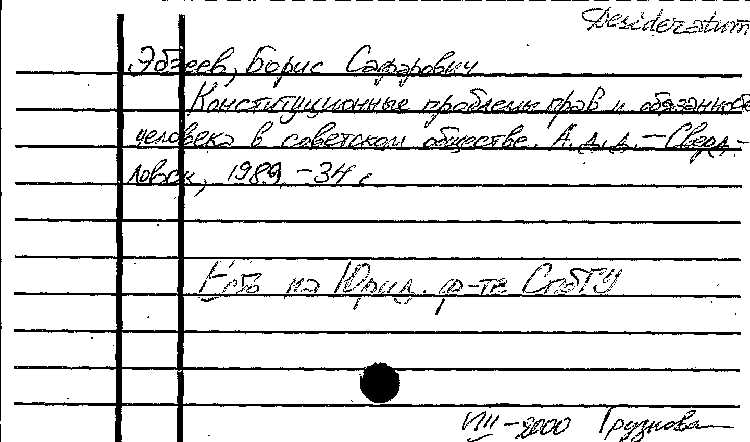 Desideratum
Эбзеев, Борис Сафарович
Конституционные проблемы прав и обязанносте
человека в советском обществе. А.д.д. – Сверд-
ловск, 1989. – 34 с
Есть на Юрид. ф-те СпбГУ
VIII – 2000 Грузнова